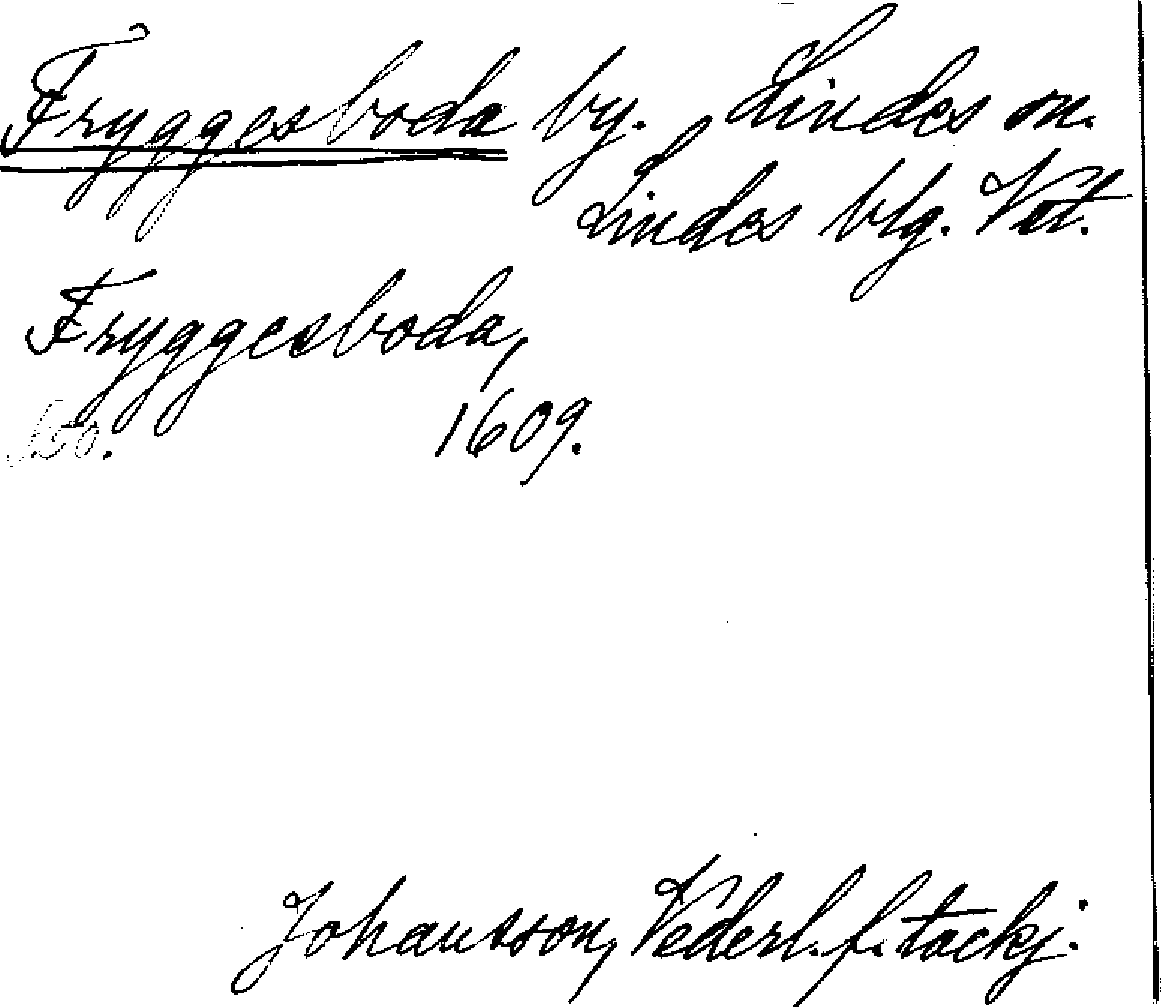 Fryggesboda by. Lindes sn.
Lindes blg. Vstm.
Fryggesboda,
1609.
Johansson, Vederl. f. tackj.